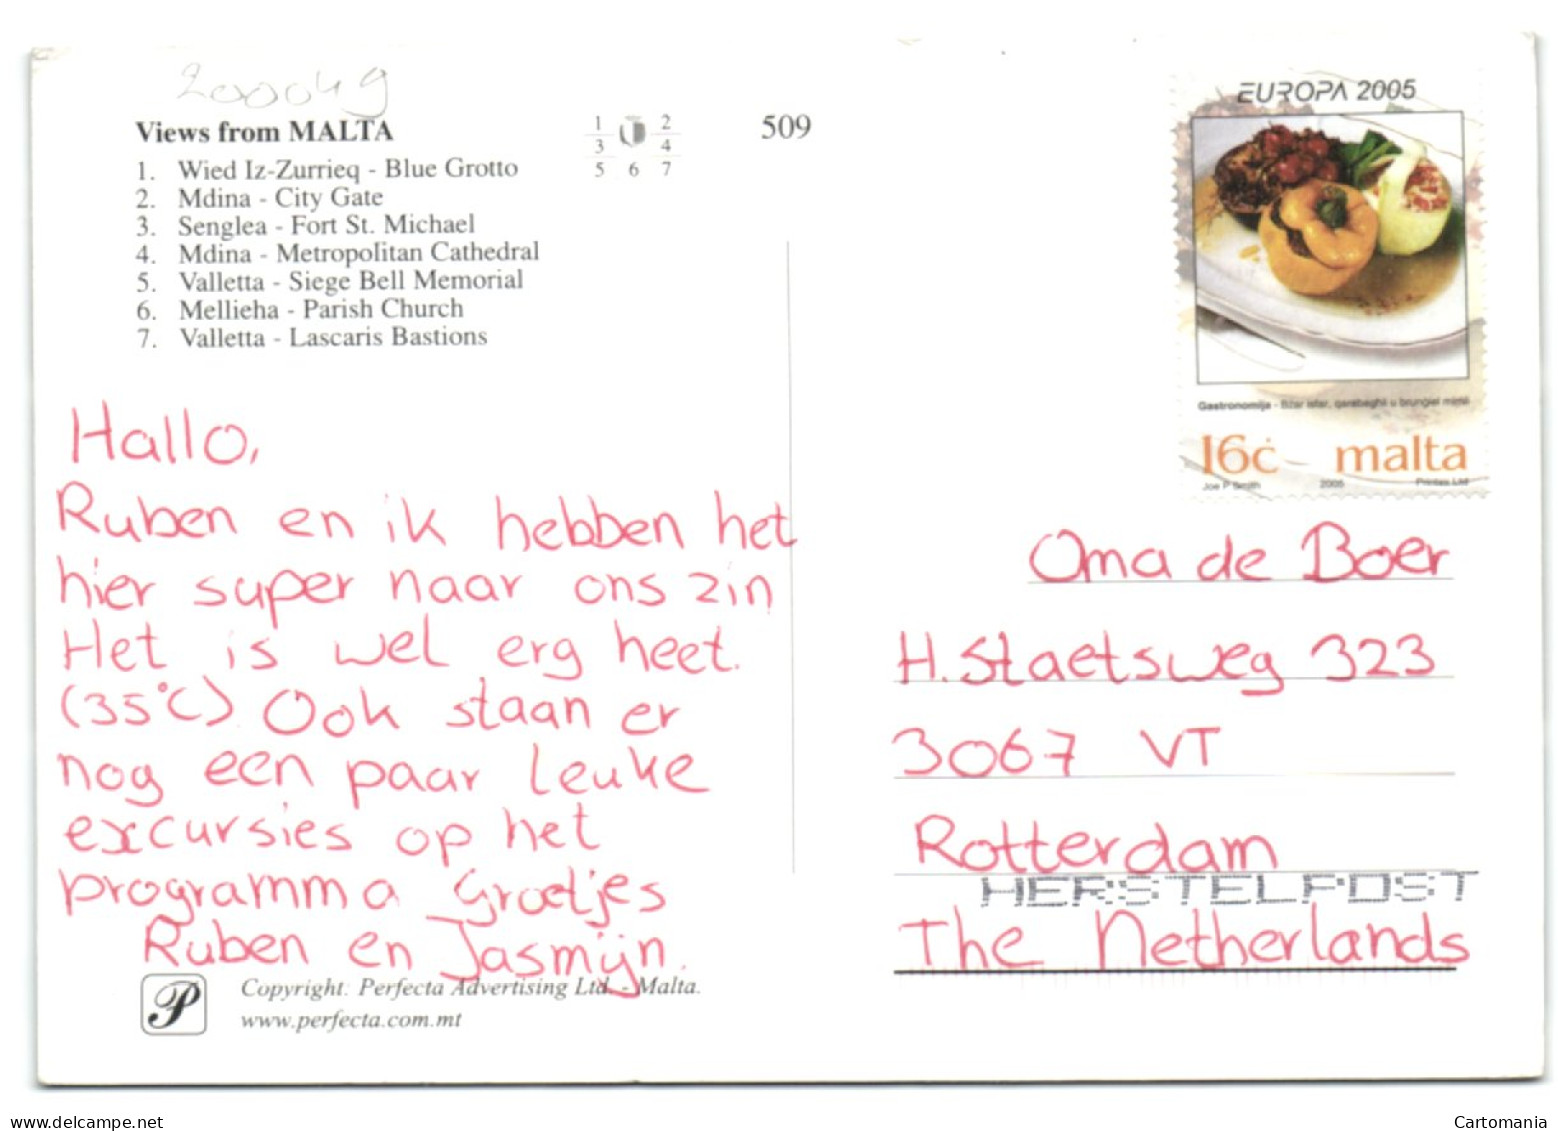 200049
Views from MALTA
1. Wied Iz-Zurrieq - Blue Grotto
2. Mdina - City Gate
3. Senglea - Fort St. Michael
4. Mdina - Metropolitan Cathedral
5. Valletta - Siege Bell Memorial
6. Mellieha - Parish Church
7. Valletta - Lascaris Bastions
1 2
3 4
5 6 7
509
EUROPA 2005
Gastronomija - Bżar isfar, qarabagħli u brunġiel mimli
16ċ malta
Joe P Smith 2005 Printex Ltd
Hallo,
Ruben en ik hebben het
hier super naar ons zin
Het is wel erg heet.
(35°C). Ook staan er
nog een paar leuke
excursies op het
programma Groetjes
Ruben en Jasmijn.
Oma de Boer
H. Staetsweg 323
3067 VT
Rotterdam
HERSTELPOST
The Netherlands
P
Copyright: Perfecta Advertising Ltd. - Malta.
www.perfecta.com.mt
https://www.delcampe.net
Cartomania